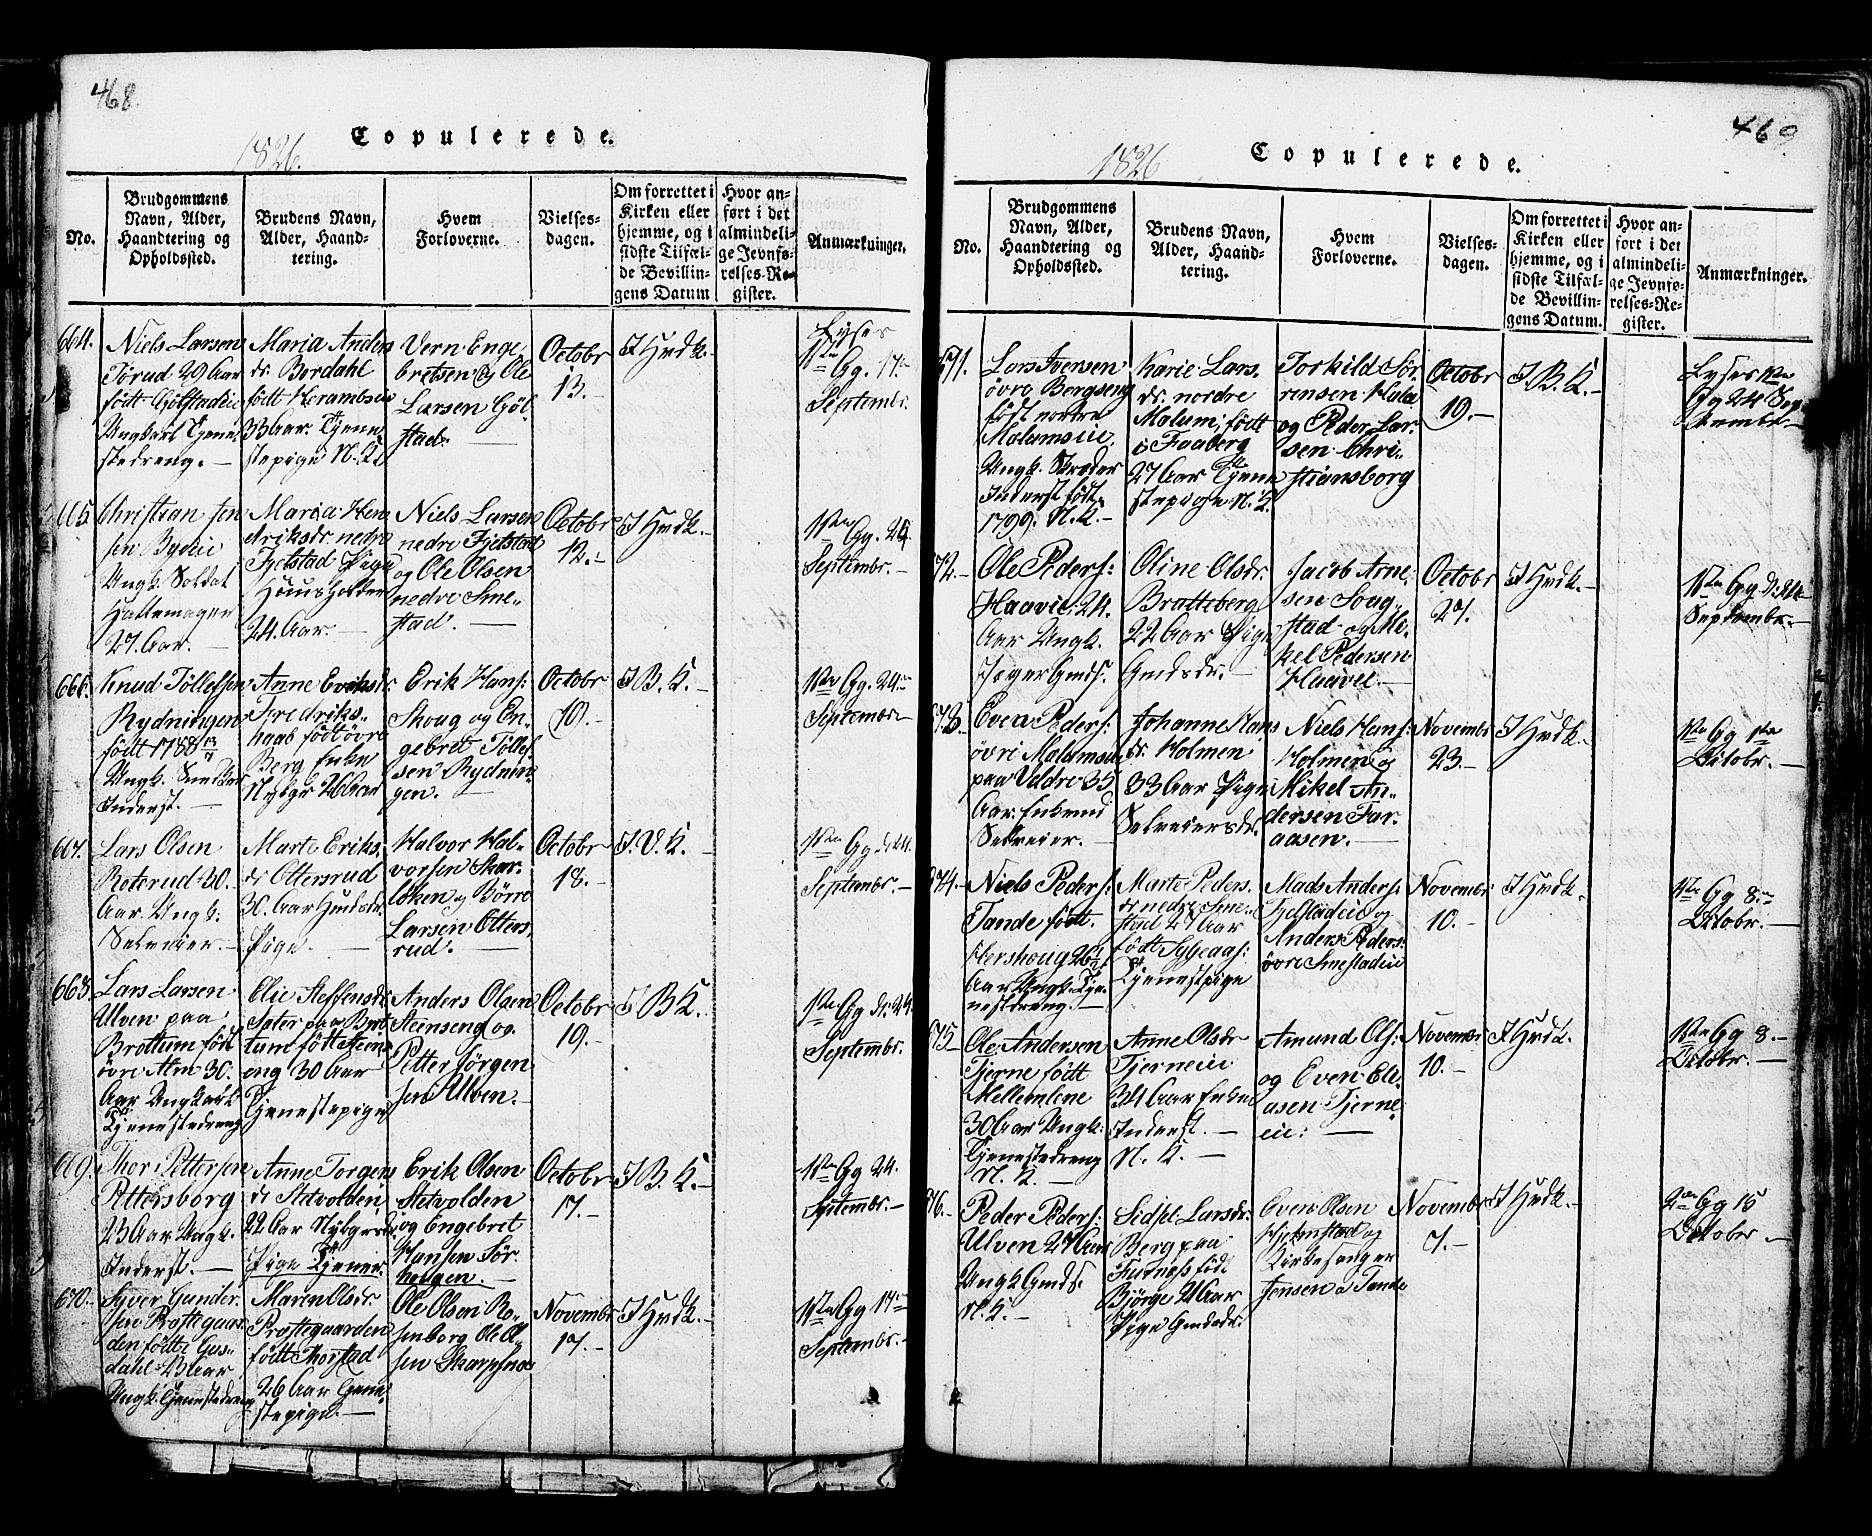 468.
Copulerede.
1826.
No.
Brudgommens
Navn, Alder,
Haandtering og
Opholdssted.
Brudens Navn,
Alder, Haand-
tering.
Hvem
Forloverne.
Vielses-
dagen.
Om forrettet i
Kirken eller
hjemme, og i
sidste Tilfæl-
de Bevillin-
gens Datum
Hvor an-
ført i det
almindeli-
ge Jevnfø-
relses-Re-
gister.
Anmærkninger.
664.
Niels Larsen
Tørud 29 Aar
født Gølstadeie
Ungkarl Tjene-
stedreng. —
Maria Anders
dr Bordahl
født
33 Aar. Tjene
stepige N. K.
Vern Enge-
bretsen og Ole
Larsen Gøl-
stad. —
Octobr
13. —
I Hvdk. —
Lyses
1ste Gg. 17
Septembr.
665
Christian Jen
sen Bydeie
Ungk. Soldat
Hattemager
27. Aar. —
Maria Hen
driksdr nedre
Fjelstad Pige
Huusholder
24. Aar. —
Niels Larsen
nedre Fjelstad
og Ole Olsen
nedre Sme-
stad. —
Octobr
12. —
I Hvdk. —
1ste Gg. 24
Septembr. —
666.
Knud Tollefsen
Rydningen
født 1788
Ungk.
Inderst. —
Anne Eriksdr
Fredriks-
haab født øvre
Berg Enke
26 Aar
Erik Hans:
Skoug og En-
gebret Tollef
sen Rydnin-
gen. —
Octobr
10. —
I B. K. —
1ste Gg. 24
September
667.
Lars Olsen
Roterud 30.
Aar. Ungk:
Selveier. —
Marte Eriks
dr Ottersrud
30. Aar Gmdsdr.
Pige. —
Halvor Hal-
vorsen Skar-
løken og Børre
Larsen Otters
rud. —
Octobr
18. —
I. V. K. —
1ste Gg d: 24.
Septembr. —
668.
Lars Larsen
Ulven paa
Brøttum født
øvre Alm 30.
Aar Ungkarl
Tjenestedreng
Elie Steffensdr
paa Brøt
tum født Steins
eng 30 Aar
Tjenestepige
Anders Olsen
Steenseng og
Petter Jørgen
sen Ulven. —
Octobr
19. —
I B K.
1ste Gg d: 24
Septembr.
669.
Thor Pettersen
Pettersborg
23 Aar Ungk.
Inderst. —
Anne Torgers
dr Stetvolden
22 Aar
Pige Tjener
Erik Olsen
Stetvolden
og Engebret
Hansen Sør
haugen. —
Octobr
17. —
I B. K. —
1ste Gg 24.
Septembr. —
670.
Syver Gunder
sen Præstegaar
den født i Gus-
dahl 23 Aar
Ungk. Tjenestedreng
Maren Olsdr
Præstegaarden
født Thorstad
26 Aar Tjene-
stepige. —
Ole Olsen Ro-
senborg Ole Ol
sen Skarpsno
Novembr
17. —
I Hvdk. —
1ste Gg 17
Septembr. —
469
Copulerede.
1826
No.
Brudgommens
Navn, Alder,
Haandtering og
Opholdssted.
Brudens Navn,
Alder, Haand-
tering.
Hvem
Forloverne.
Vielses-
dagen.
Om forrettet i
Kirken eller
hjemme, og i
sidste Tilfæl-
de Bevillin-
gens Datum.
Hvor an-
ført i det
almindeli-
ge Jevnfø-
relses-Re-
gister.
Anmærkninger.
671.
Lars Iversen
øvre Bergseng
født nordre
Molumseie,
Ungk. Skræder
Inderst født
1799. N. K. —
Karie Lars
dr. nordre
Molum, født
i Faaberg
27 Aar Tjene
stepige N. K.
Torkild Sør
rensen
og Peder Lar-
sen Chri-
stiansborg
Octobr
19. —
I B. K. —
Lyses 1ste
Gg 24 Sep-
tembr. —
672. —
Ole Peders:
Haavie: 24.
Aar Ungk.
Jæger Gmds.
Oline Olsdr.
Bratteberg
22 Aar Pige
Gmdsdr. —
Jacob Arne-
sen Soug-
stad og Mi-
kel Pedersen
Haavel. —
Octobr
27.
I Hvdk. —
1ste Gg d: 24
Septembr. —
673
Even Peders:
øvre Molumseie
paa Veldre 35
Aar Enkemd
Selveier. —
Johanne Hans
dr. Holmen
33 Aar Pige
Selveiersdr.
Niels Hans:
Holmen og
Mikel An-
dersen Far-
aasen. —
Novembr
23. —
I Hvdk. —
1ste Gg 1ste
Octobr. —
674. —
Niels Peders:
Tande født
Hershoug 26
Aar Ungk. Tje-
nestedreng. —
Marte Peders
dr nedre Sme-
stad 27 Aar
født
Tjenestepige
Mads Anders:
Fjelstadeie og
Anders Peders:
øvre Smestadeie
Novembr
10. —
I Hvdk. —
1ste Gg 8
Octobr. —
675 —
Ole Andersen
Tjerne født
Mellemlene
30 Aar Ungk:
Tjenestedreng
N. K. —
Anne Olsdr
Tjerneeie
34 Aar Enke
Inderst. —
N. K. —
Amund Ols:
og Even Ele-
asen Tjerne-
eie: —
Novembr
10. —
I Hvdk.
1ste Gg 8. —
Octobr. —
676. —
Peder Peders:
Ulven 27 Aar
Ungk Gmds.
N. K. —
Sidsel Larsdr.
Berg paa
Furnæs født
Bjørge 21 Aar
Pige Gmdsdr.
Even Olsen
Hjelmstad og
Kirkesanger
Jensen i Tande
Novembr
7. —
I Hvdk. —
2den Gg 15
Octobr —